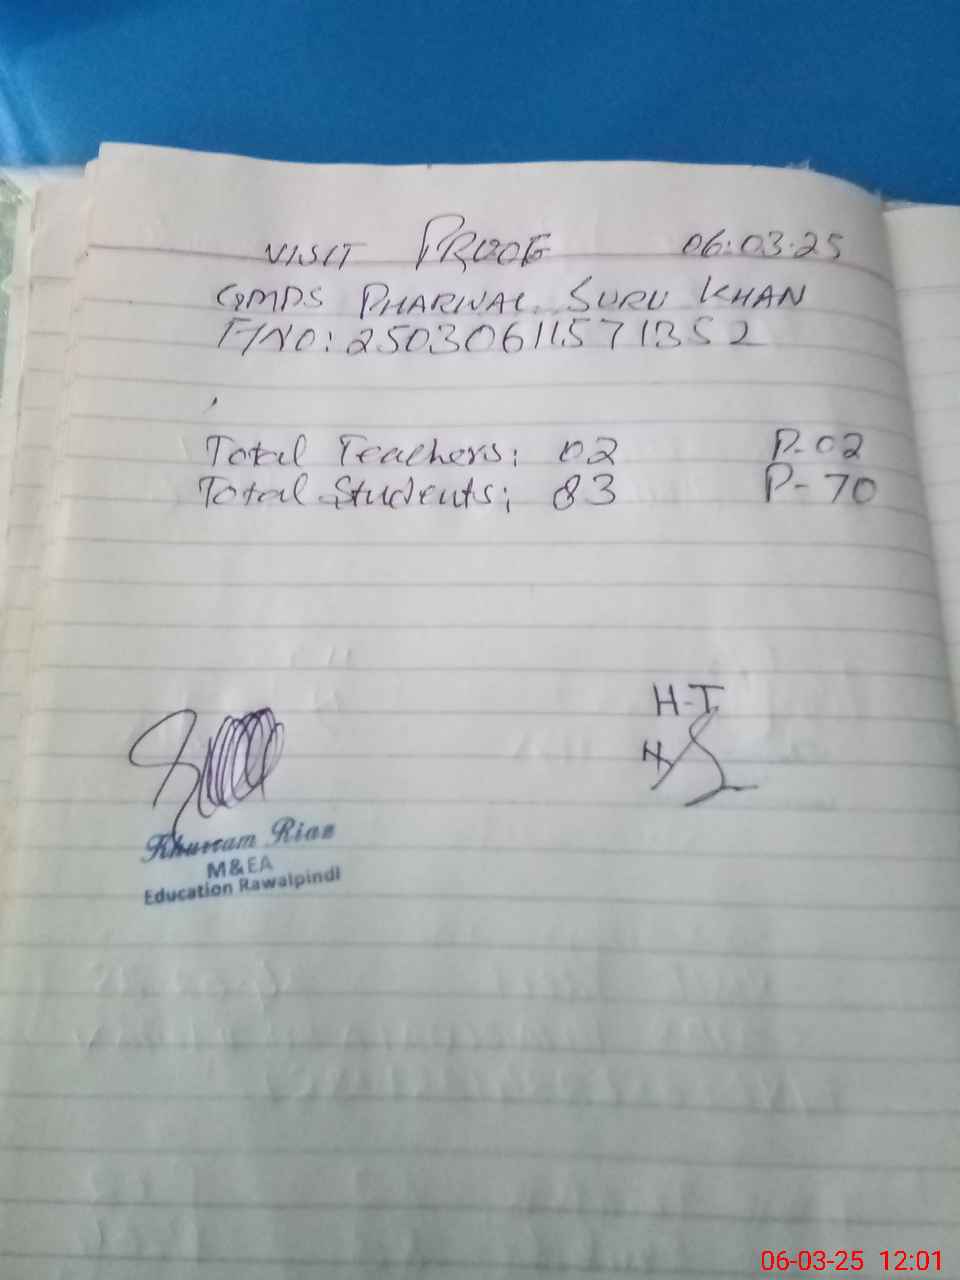 VISIT PROOF 06.03.25
GMPS PHARWAL SURU KHAN
F/NO: 25030611571352
Total Teachers: 02 P-02
Total Students: 83 P-70
H-T
Khurram Riaz
M&EA
Education Rawalpindi
06-03-25 12:01